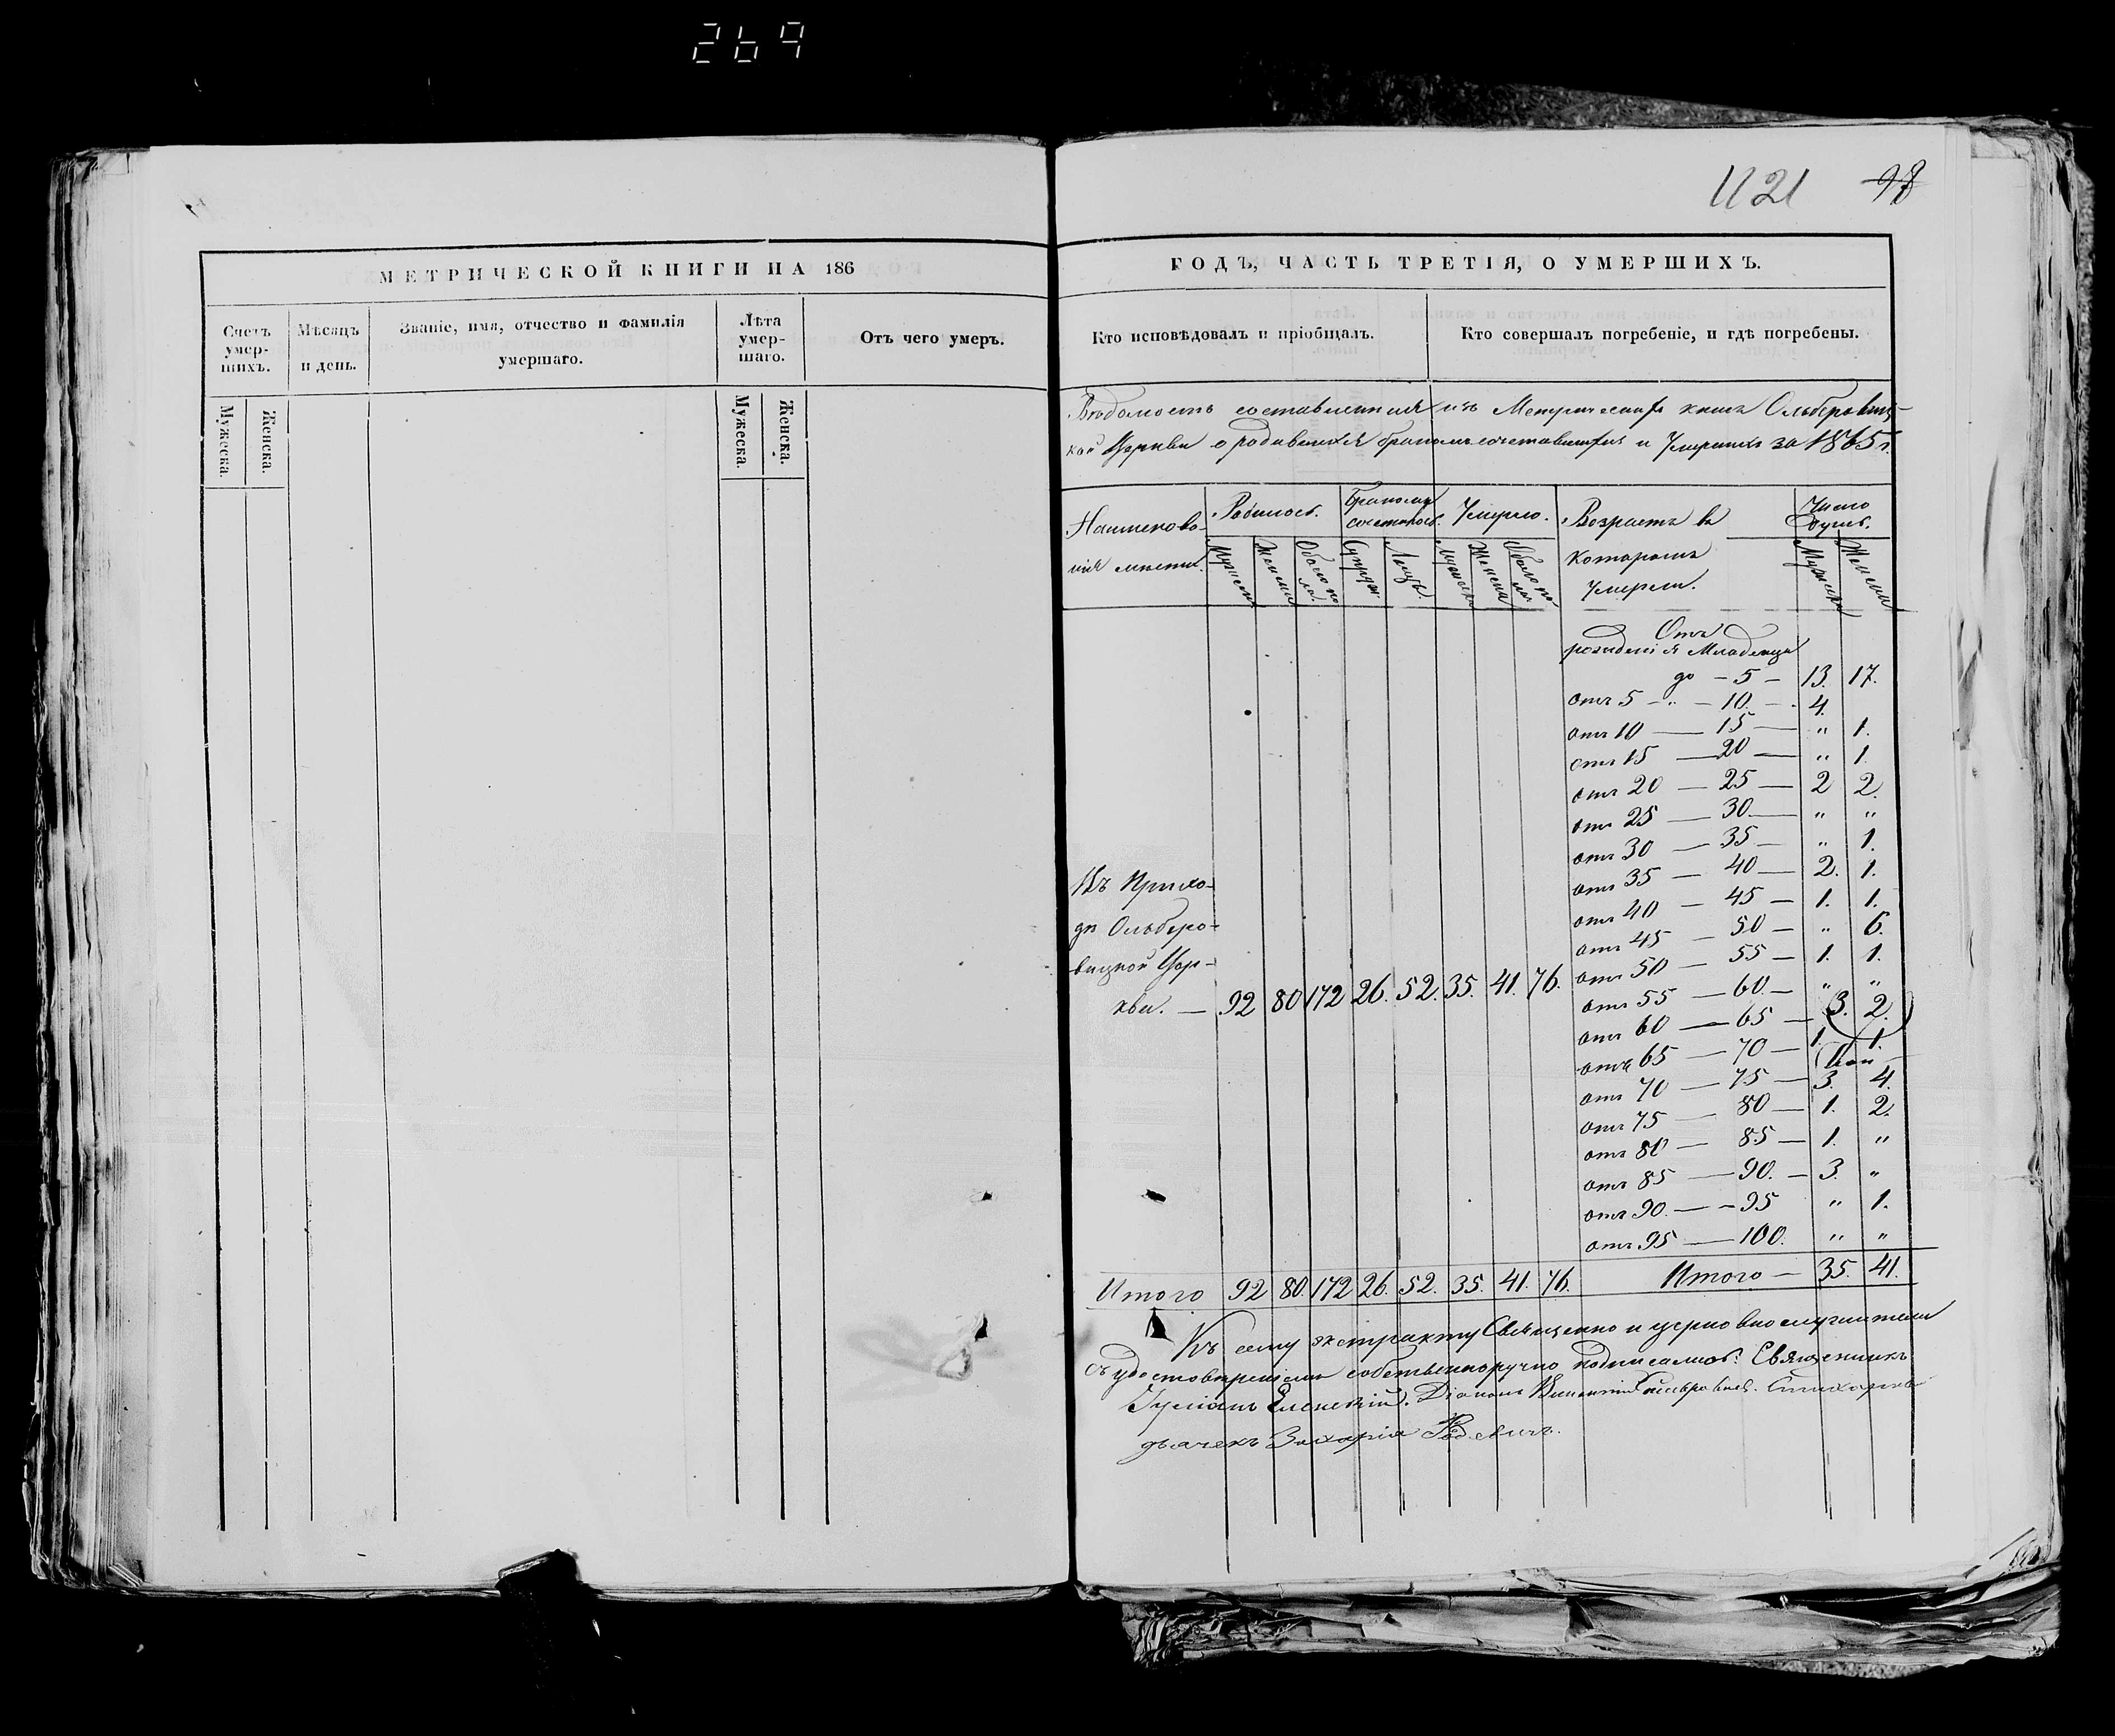 269
1121 98
МЕТРИЧЕСКОЙ КНИГИ НА 186
Счетъ умер-шихъ. Мѣсяцъ и день. Званіе, имя, отчество и фамилія умершаго. Лѣта умер-шаго. Отъ чего умеръ.
Мужеска. Женска. Мужеска. Женска.
ГОДЪ, ЧАСТЬ ТРЕТІЯ, О УМЕРШИХЪ.
Кто исповѣдовалъ и пріобщалъ. Кто совершалъ погребеніе, и гдѣ погребены.
Вѣдомость составленная изъ Метрическихъ книгъ Ольберовиц-
кой Церкви о родившихся бракомъ сочетавшихся и Умершихъ за 1865 г.
Наименова-
нія мѣстъ.
Родилось. Бракомъ сочеталось. Умерло. Возрастъ въ
которомъ
Умерли.
Число душъ.
Мужеска Женска Обоего пола Супруж. Лицъ. Мужеска Женска Обоего пола Мужеска Женска
Отъ
рожденія Младенца
до - 5 - 13. 17.
отъ 5 - " - 10. - 4.
отъ 10 — 15 — " 1.
отъ 15 — 20 — " 1.
отъ 20 — 25 — 2 2.
отъ 25 — 30 — " "
отъ 30 — 35 — " 1.
отъ 35 — 40 — 2. 1.
отъ 40 — 45 — 1. 1.
отъ 45 — 50 — " 6.
отъ 50 — 55 — 1. 1.
отъ 55 — 60. — " "
отъ 60 — 65 — 3. 2.
отъ 65 — 70 — 1. 1.
отъ 70 — 75 — 3. 4.
отъ 75 — 80 — 1. 2.
отъ 80 — 85 — 1. "
отъ 85 — 90. — 3. "
отъ 90. — 95 " 1.
отъ 95 — 100. " "
Въ Прихо-
дѣ Ольберо-
вицкой Цер-
кви. — 92 80 172 26. 52. 35. 41. 76.
Итого 92 80. 172 26. 52. 35. 41. 76. Итого — 35. 41.
Къ сему экстракту Священно и церковнослужители
съ удостовѣреніемъ собственноручно подписались: Священникъ
Еленскій. Діаконъ
дьячекъ Захарія